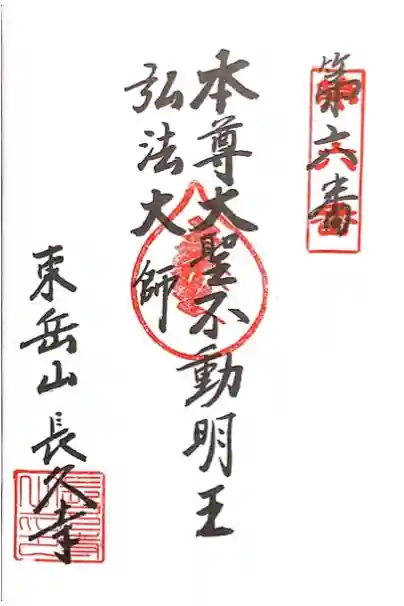 第六番
本尊大聖不動明王
弘法大師
東岳山 長久寺